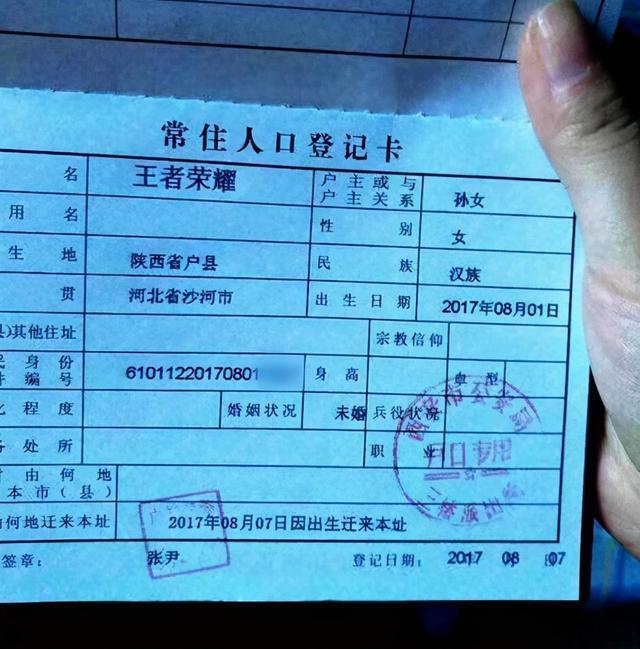 常住人口登记卡
名 王者荣耀 户主或与户主关系 孙女
用名 性别 女
生地 陕西省户县 民族 汉族
贯 河北省沙河市 出生日期 2017年08月01日
县)其他住址 宗教信仰
民身份
件编号 61011220170801 身高 血型
化程度 婚姻状况 未婚 兵役状况
务处所 职业
由何地
本市(县)
何地迁来本址 2017年08月07日因出生迁来本址
签章: 张尹 登记日期: 2017 08 07
西安市公安局
户口专用
派出所